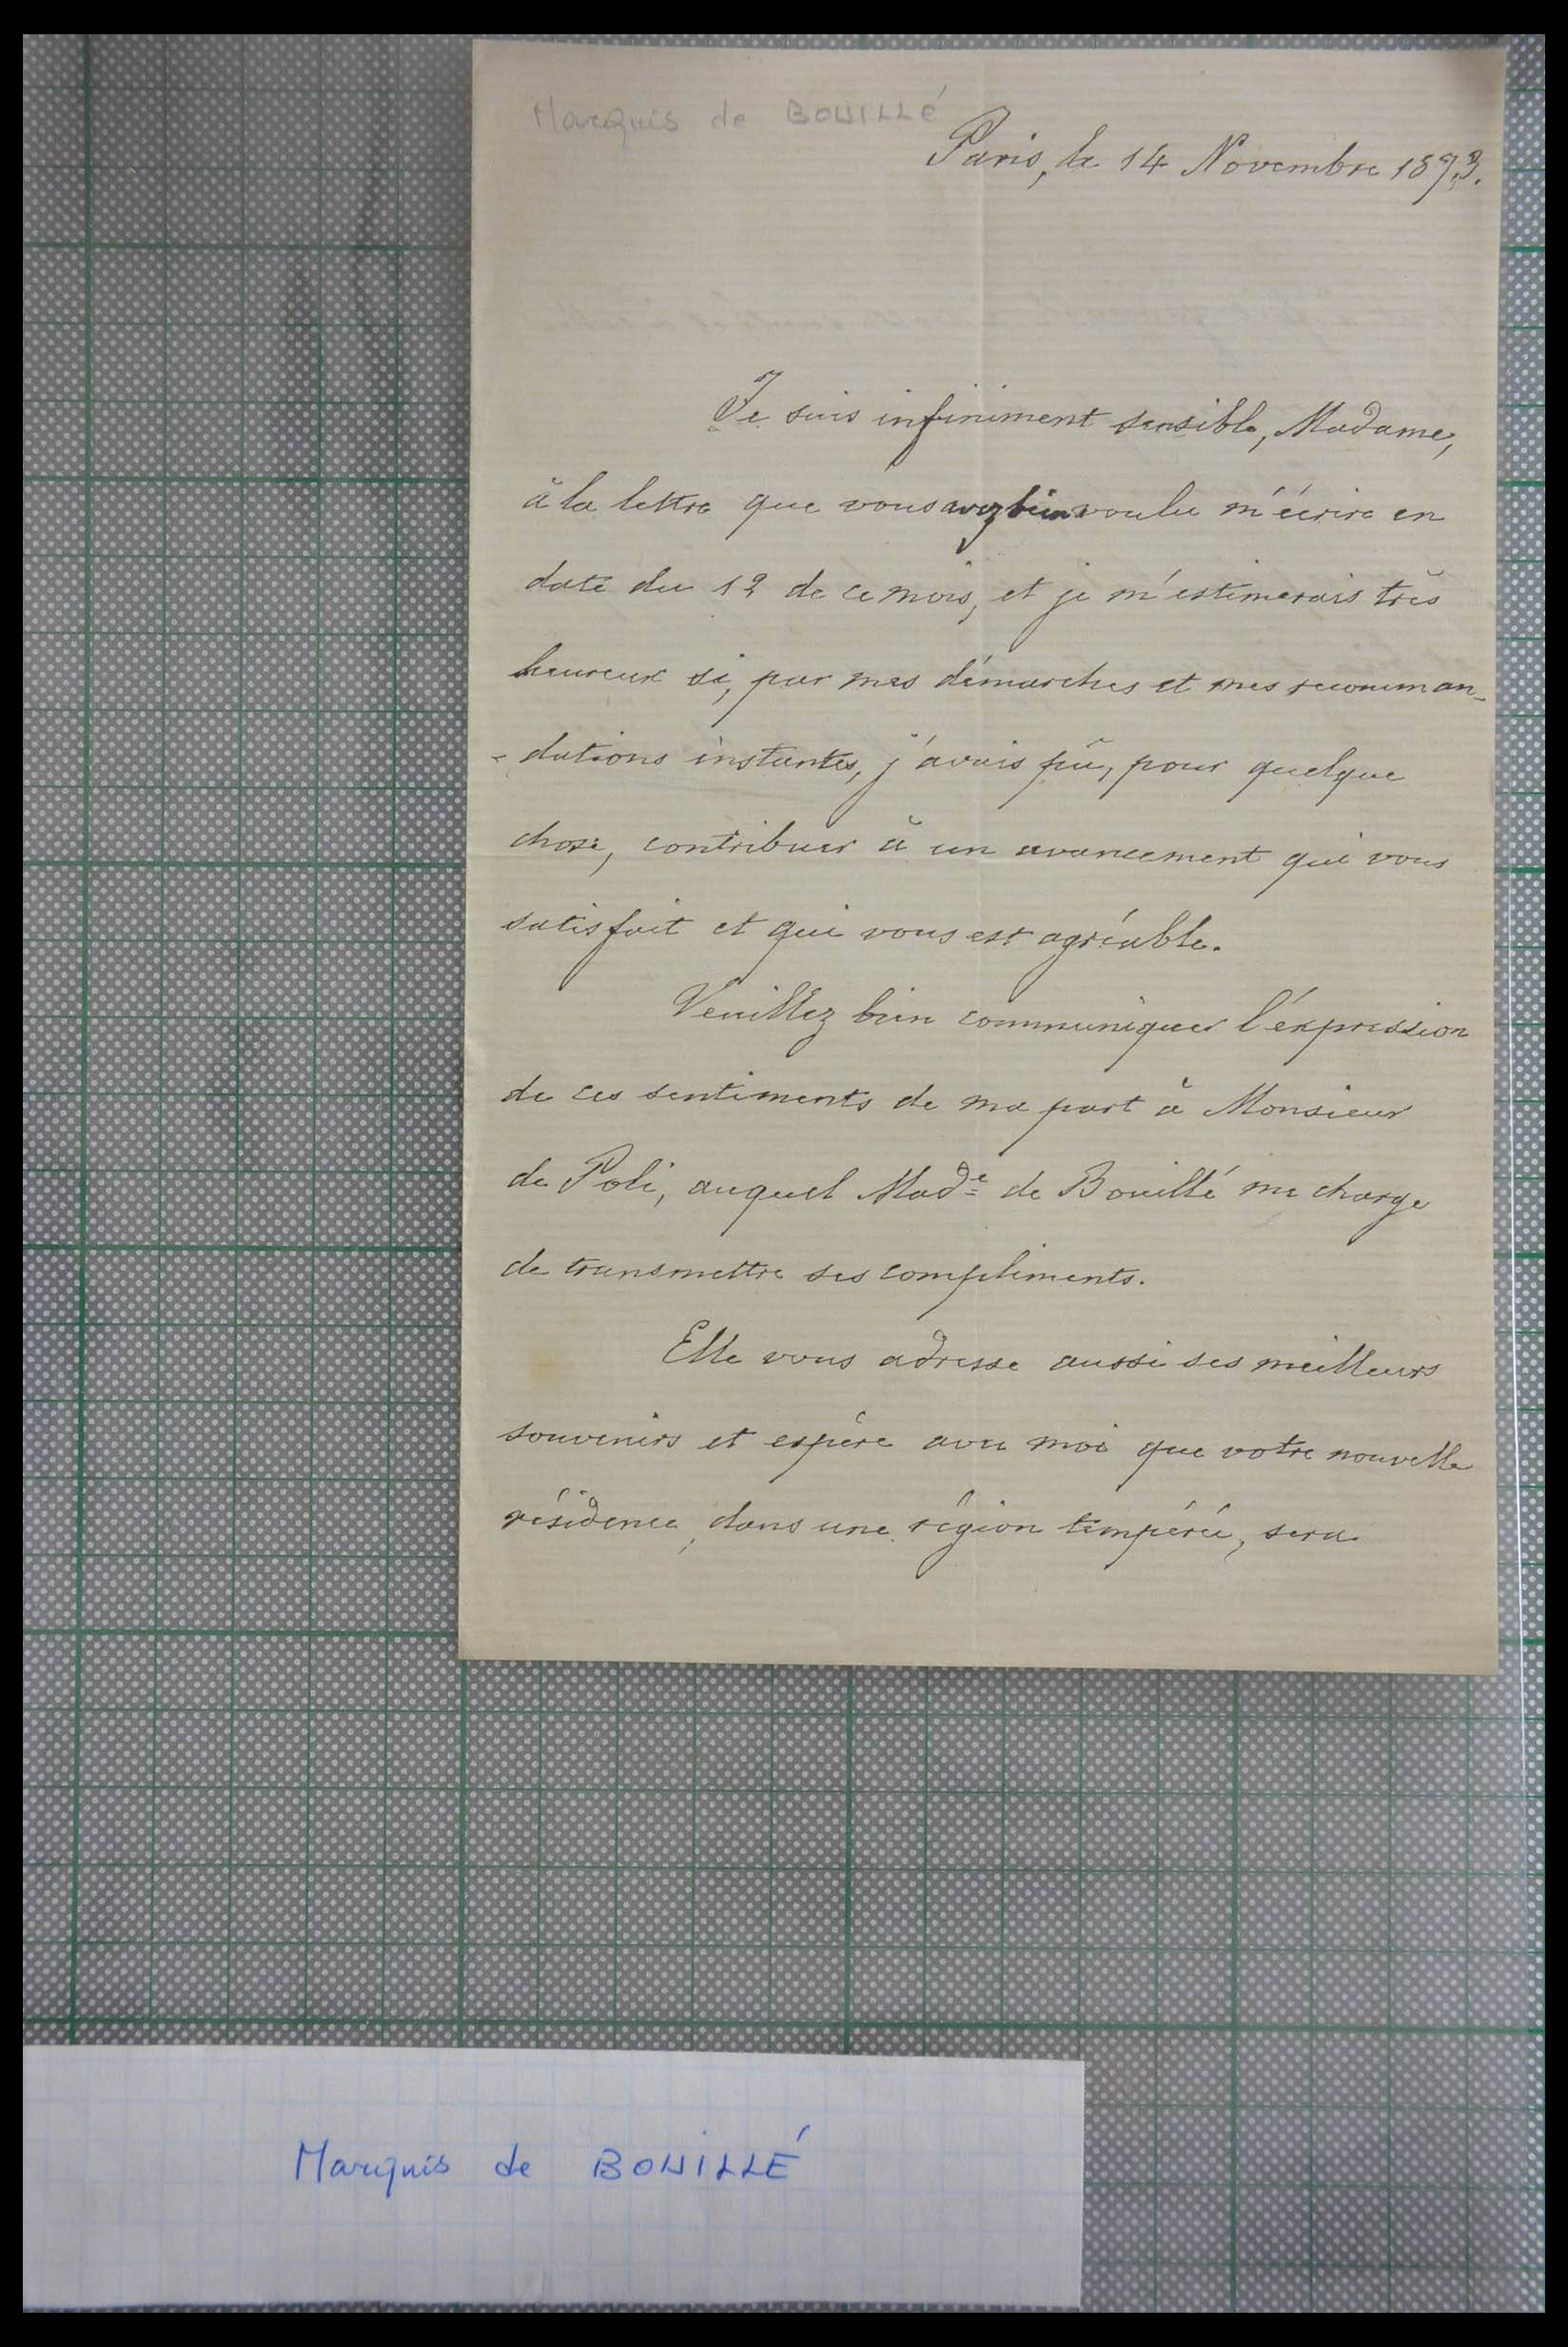 Marquis de BOUILLÉ
Paris, le 14 Novembre 1873.
Je suis infiniment sensible, Madame,
à la lettre que vous avez bien voulu m'écrire en
date du 12 de ce mois, et je m'estimerais très
heureux si, par mes démarches et mes recomman-
-dations instantes, j'avais pû, pour quelque
chose, contribuer à un avancement qui vous
satisfait et qui vous est agréable.
Veuillez bien communiquer l'éxpression
de ces sentiments de ma part à Monsieur
de Poli, auquel Made de Bouillé me charge
de transmettre ses compliments.
Elle vous adresse aussi ses meilleurs
souvenirs et espère avec moi que votre nouvelle
résidence, dans une région tempérée, sera
Marquis de BOUILLÉ